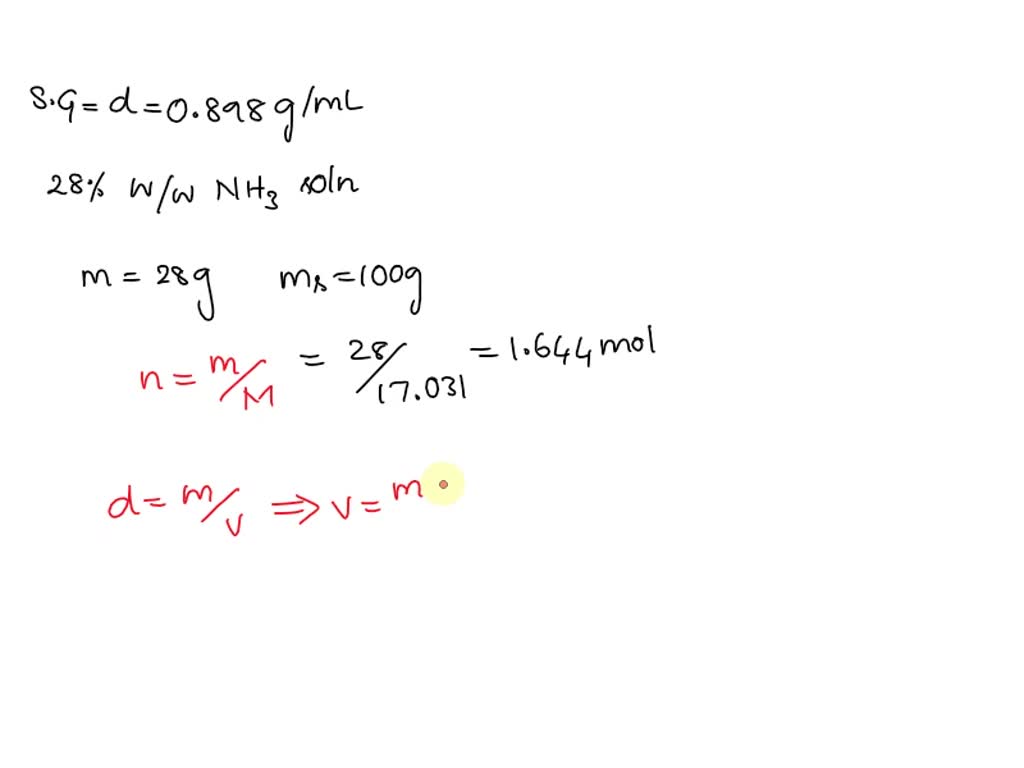 S.G = d = 0.898 g/mL
28% W/W NH3 soln
m = 28g ms = 100g
n = m/M = 28/17.031 = 1.644 mol
d = m/v ⇒ v = m